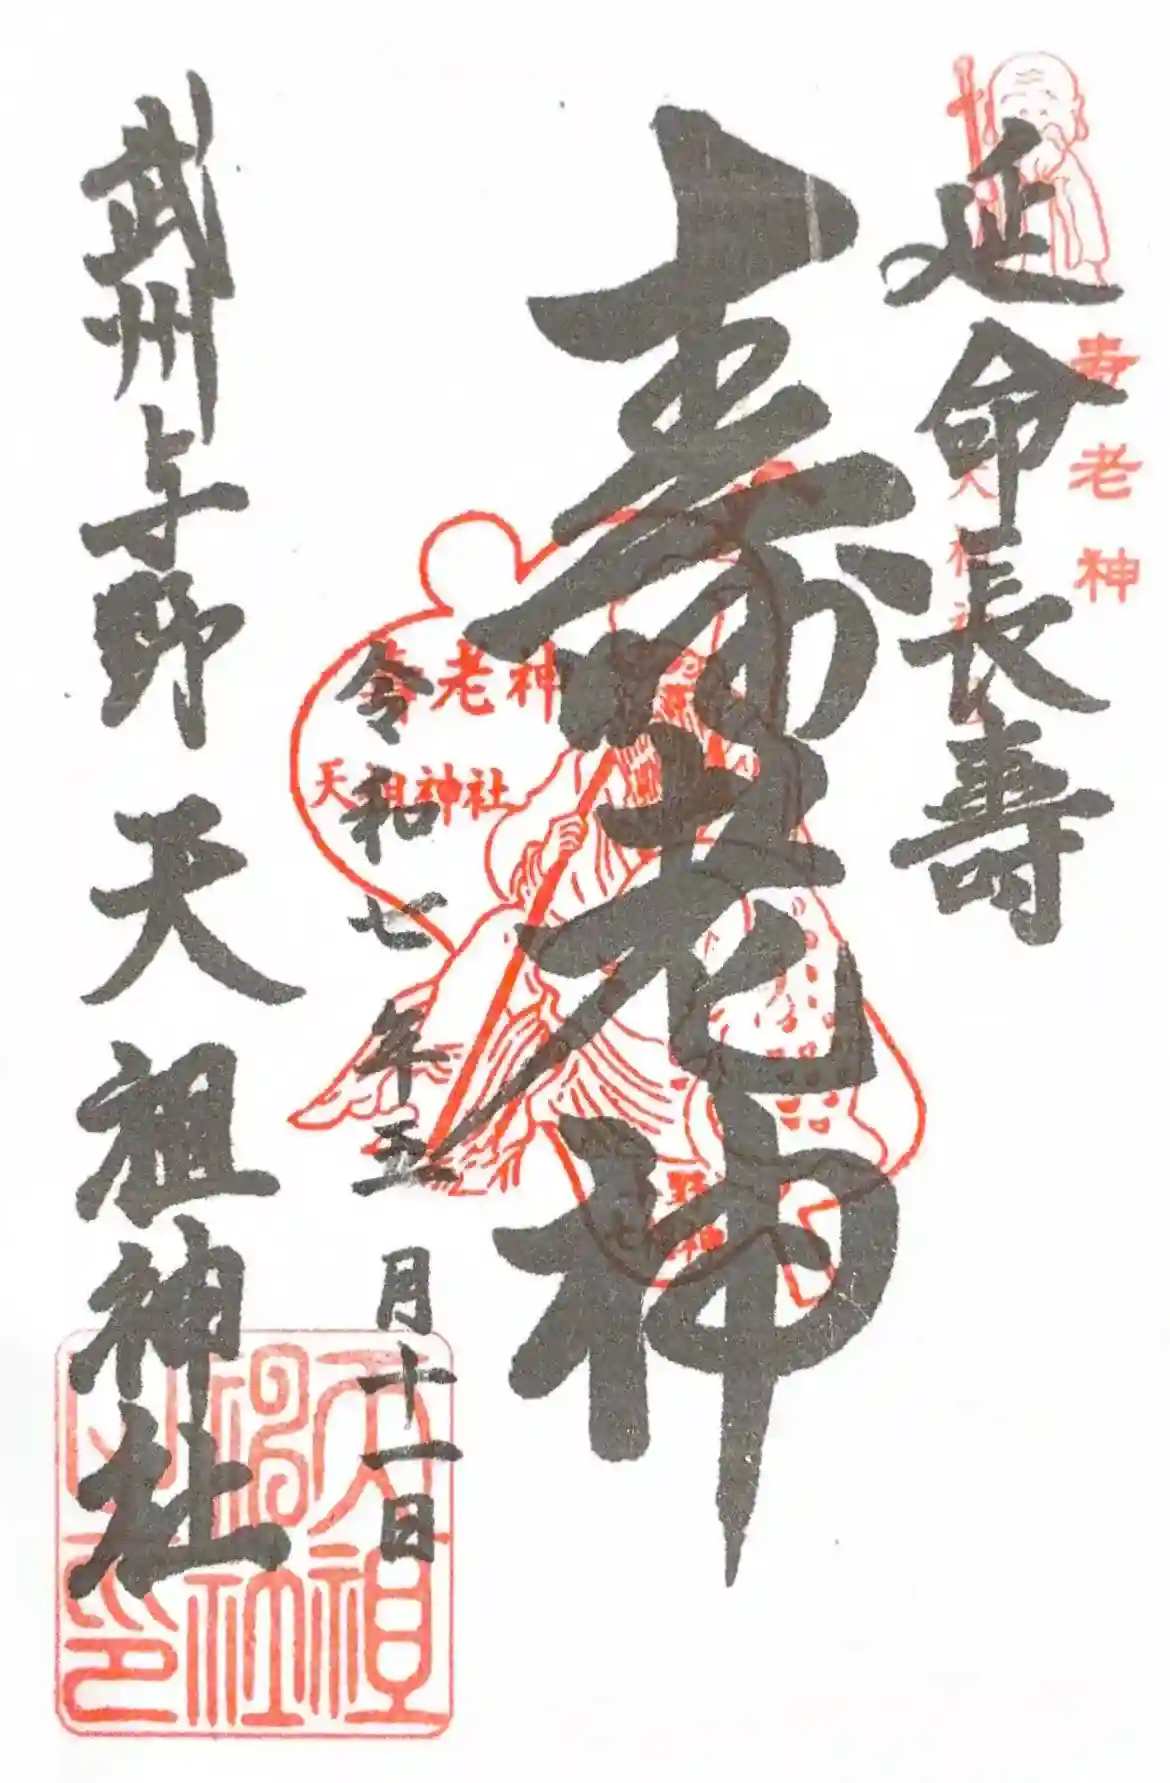 寿老神
延命長壽
壽老神
寿老神
天祖神社
野
七福神
令和七年五月十一日
武州与野 天祖神社
天祖神社之印